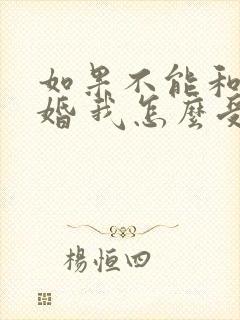 如果不能和
婚我怎麼受
楊恒四